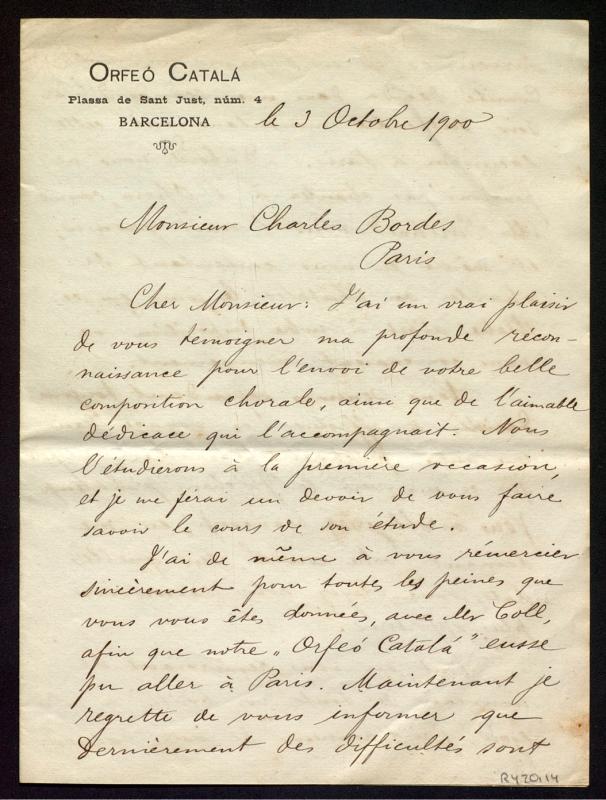 ORFEÓ CATALÁ
Plassa de Sant Just, núm. 4
BARCELONA
le 3 Octobre 1900
Monsieur Charles Bordes
Paris
Cher Monsieur: J'ai un vrai plaisir
de vous témoigner ma profonde récon-
naissance pour l'envoi de votre belle
composition chorale, ainsi que de l'aimable
dédicace qui l'accompagnait. Nous
l'étudierons à la première occasion,
et je me férai un devoir de vous faire
savoir le cours de son étude.
J'ai de même à vous rémercier
sincèrement pour toutes les peines que
vous vous êtes données, avec Mr Coll,
afin que notre „Orfeó Catalá" eusse
pu aller à Paris. Maintenant je
regrette de vous informer que
dernièrement des difficultés sont
R420,14